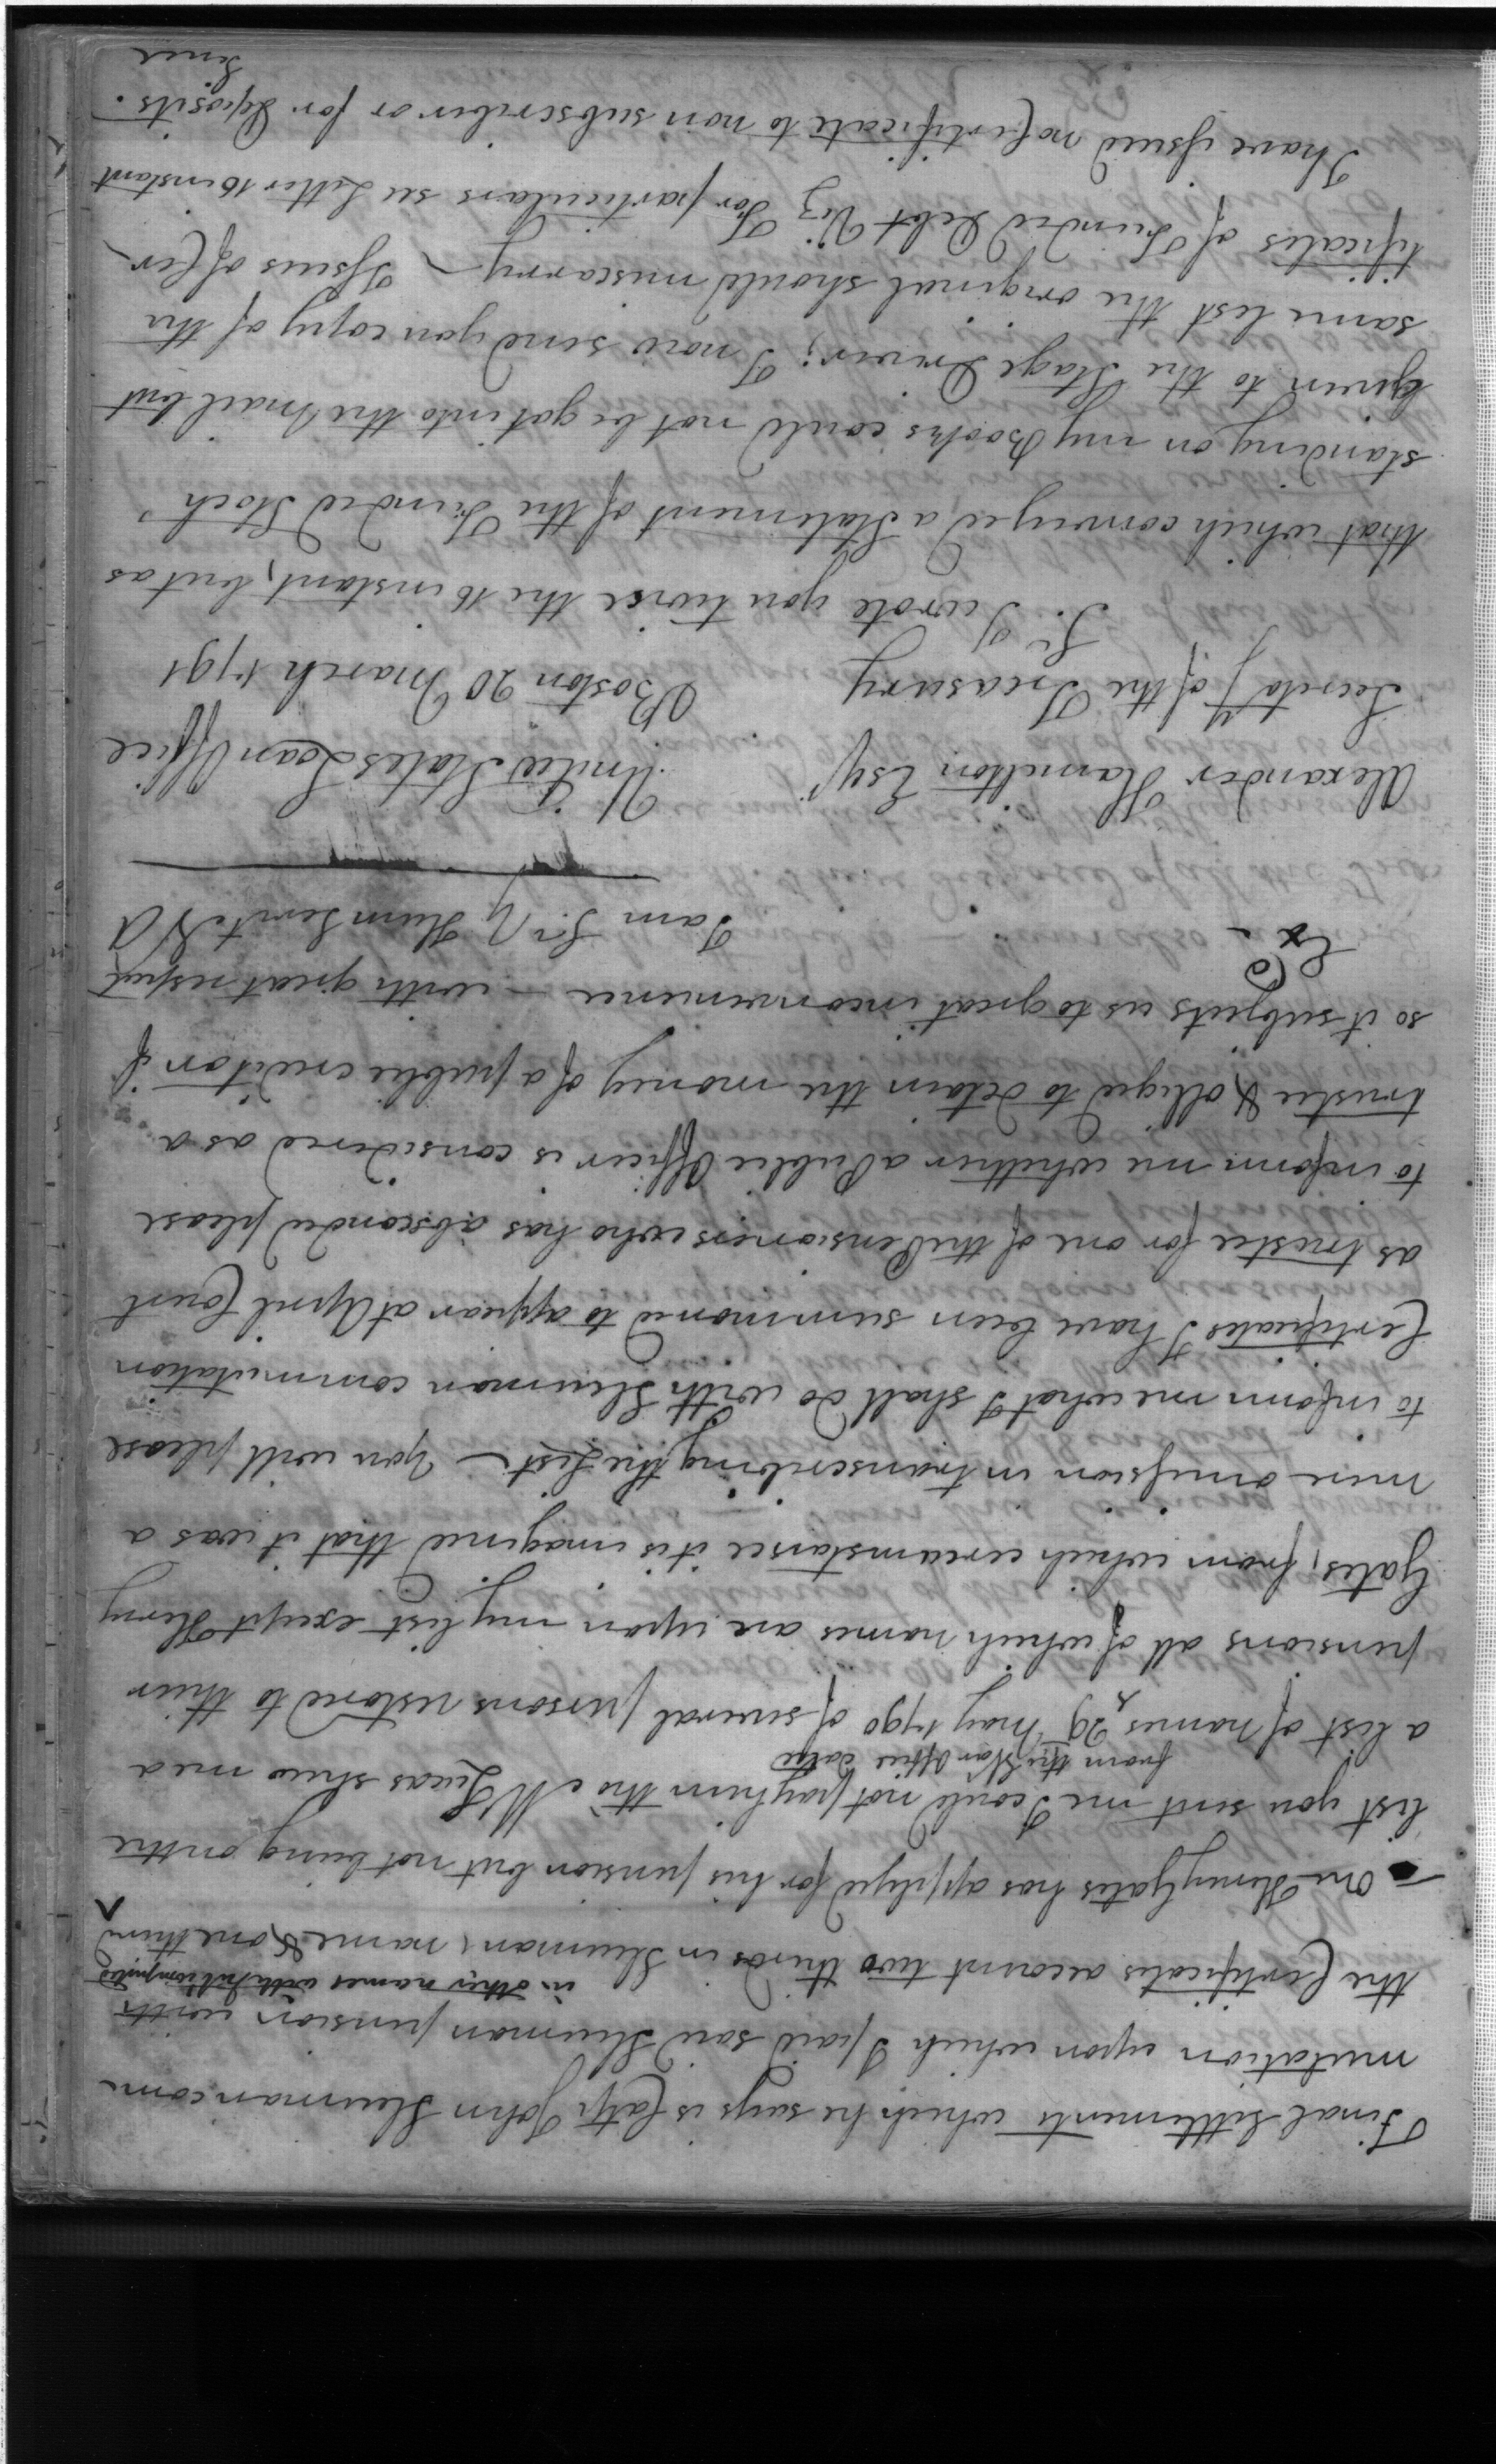 Final Settlements which he says is Capt John Hurman com
mutation upon which I paid said Hurman pension with
in other names with full compleated
the Certificates account two thirds in Hurman, name & one third
— One Henry Gates has applyed for his pension but not being on the
list you sent me I could not pay him tho M Lucas shew me a
from the War Office dated
a list of names 29 May 1790 of several persons restored to their
pensions all of which names are upon my list except Henry
Gates, from which circumstance it is imagined that it was a
mere omission in transcribing the List — You will please
to inform me what I shall do with Hurman commutation
Certificates I have been summoned to appear at April Court
as trustee for one of the Pensioners who has absconded please
to inform me whether a Public Officer is considered as a
trustee & obliged to detain the money of a public creditor if
so it subjects us to great inconvenience — with great respect
I am Sir Y Hum Servt N A
Ex
Alexander Hamilton Esqr
United States Loan Office
Secrety of the Treasury
Boston 20 March 1791
Sir I wrote you twice the 16 instant, but as
that which conveyed a Statement of the Funded Stock
standing on my Books could not be got into the Mail but
given to the Stage Driver; I now send you copy of the
same lest the original should miscarry — Issues of Cer
tificates of Funded Debt Viz For particulars see Letter 16 instant
I have issued no Certificate to non subscriber or for Deposits.
Since